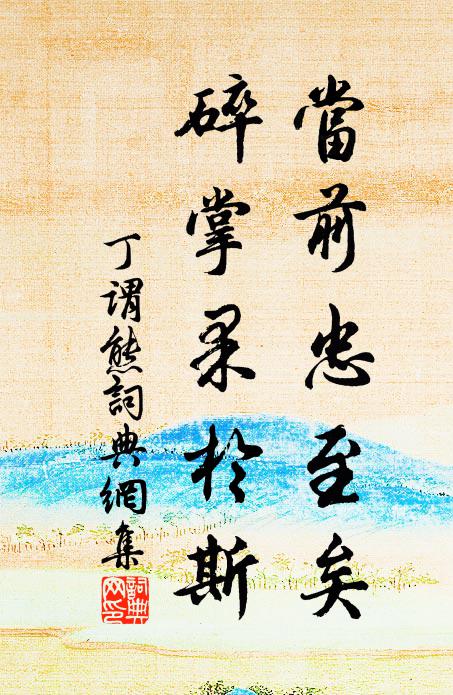 當前忠至矣
碎掌果於斯
丁謂熊詞典網集
詞典网印